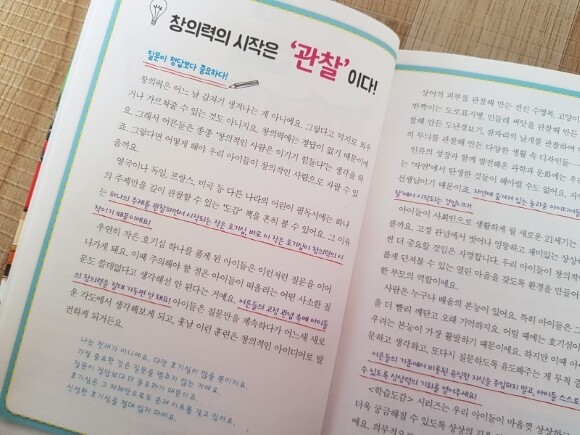 창의력의 시작은 '관찰'이다!
질문이 정답보다 중요하다!
창의력은 어느 날 갑자기 생겨나는 게 아니에요. 그렇다고 억지로 외우
거나 가르쳐줄 수 있는 것도 아니지요. 창의력에는 정답이 없기 때문이에
요. 그래서 어른들은 종종 "창의적인 사람은 이기기 힘들다"는 생각을 하
죠. 그렇다면 어떻게 해야 우리 아이들이 창의적인 사람으로 자랄 수 있
을까요.
영국이나 독일, 프랑스, 미국 등 다른 나라의 어린이 필독서에는 하나
의 주제만을 깊이 관찰할 수 있는 '도감' 책을 흔히 볼 수 있어요. 그 이유
는 하나의 주제를 관찰하면서 시작되는 작은 호기심, 바로 이 작은 호기심이 창의력의 시
작이기 때문이에요!
우연히 작은 호기심 하나를 품게 된 아이들은 이런저런 질문을 이어
나가게 돼요. 이때 주의해야 할 점은 아이들이 떠올리는 어떤 사소한 질
문도 쓸데없다고 생각해선 안 된다는 거예요. 어른들의 고정 관념 속에 아이들
의 창의력을 절대 가두면 안 돼요! 아이들은 질문만을 계속하다가도 어느새 새로
운 각도에서 생각해보게 되고, 훗날 이런 훈련은 창의적인 아이디어로 발
전하게 되거든요.
나는 천재가 아니에요. 다만 호기심이 많을 뿐이지요.
가장 중요한 것은 질문을 멈추지 않는 거예요.
질문이 정답보다 더 중요하기 때문이죠.
호기심은 그 자체만으로도 존재 이유를 갖고 있어요.
신성한 호기심을 절대 잃지 마세요.
상어의 피부를 관찰해 만든 전신 수영복, 고양이
반짝이는 도로표지병, 민들레 씨앗을 관찰해 만든
찰해 만든 도난경보기, 상자리의 날개를 관찰하여
의 무늬를 관찰해 만든 다양한 생활 속 디자인들
인류의 성장과 함께 발전해온 과학과 문화에는 우
는 '자연'에서 탄생한 것들이 헤아릴 수도 없어요. 자
선생님이기 때문이죠. 자연에 숨겨져 있는 놀라운 아이디어들
찰'에서 시작되는 것입니다!
아이들이 사회인으로 생활하게 될 새로운 21세기는
름까요. 고정 관념에서 벗어나 엉뚱하고 재미있는 상상
씬 더 중요할 것임은 자명합니다. 우리 아이들이 창의적
롭게 던져볼 수 있는 열린 마음을 갖도록 환경을 만들어
한 부모의 역할이에요.
사람은 누구나 배움의 본능이 있어요. 특히 아이들은 그
을 더 빨리 깨닫고 오래 기억하지요. 어릴 때에는 호기심이
우려는 본능이 가장 활발하기 때문이에요. 하지만 이때 아
문하고 생각하고, 또다시 질문하도록 유도해주는 게 무척 중
어른들의 기준에서 비롯된 유익한 지식을 주입하지 말고, 아이들 스스로
수 있도록 상상력의 기회를 열어주세요!
<학습도감> 시리즈는 우리 아이들이 마음껏 상상하고
더욱 궁금해질 수 있도록 유상의
에요. 의무적으로